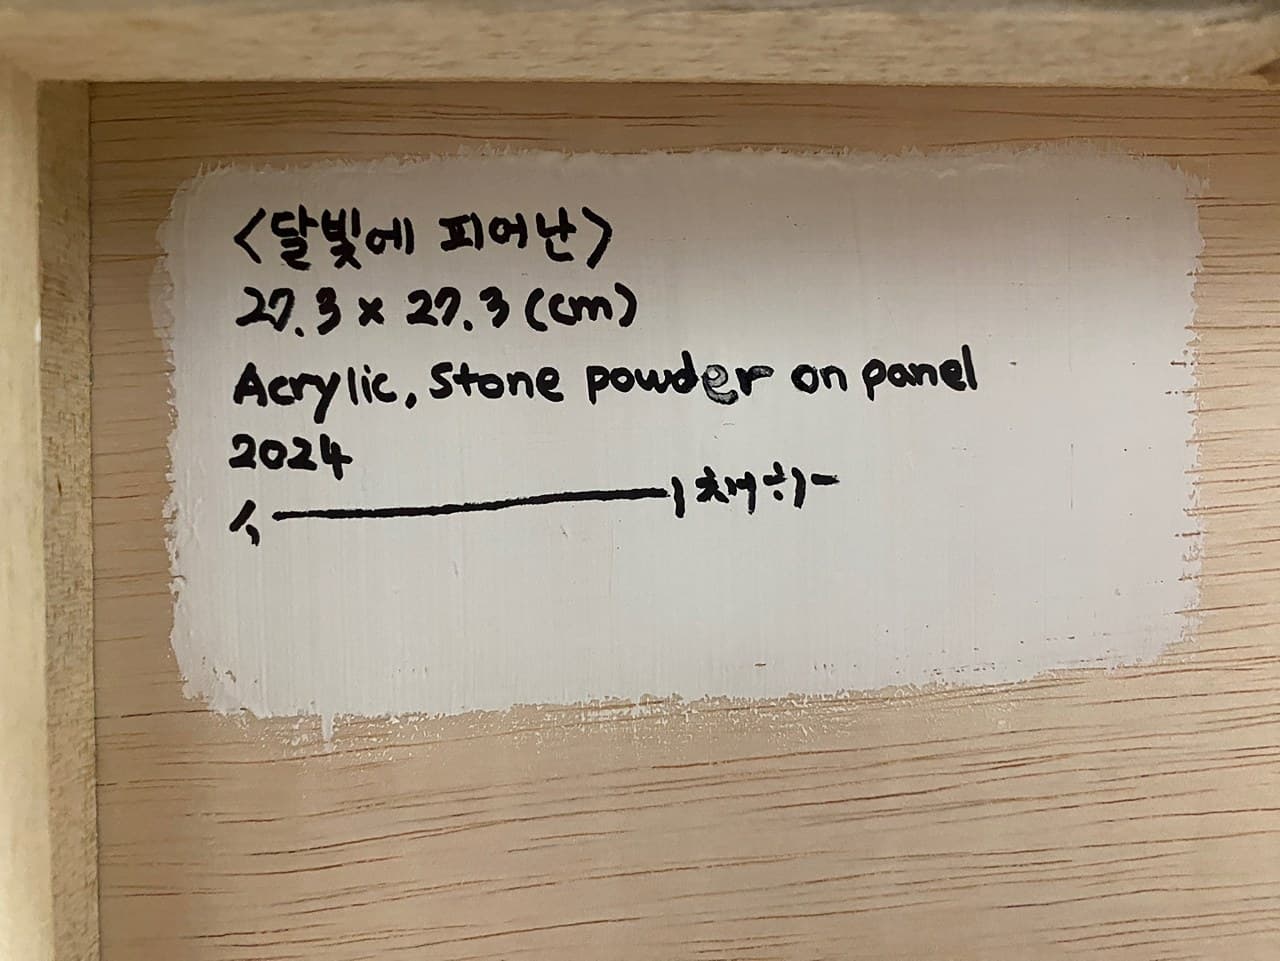 <달빛에 피어난>
27.3 x 27.3 (cm)
Acrylic, Stone powder on panel
2024